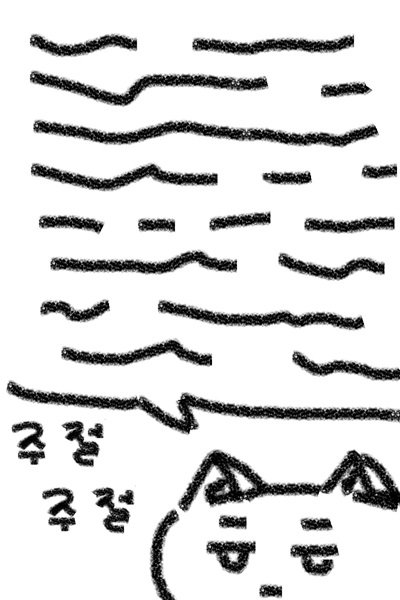 주절
주절